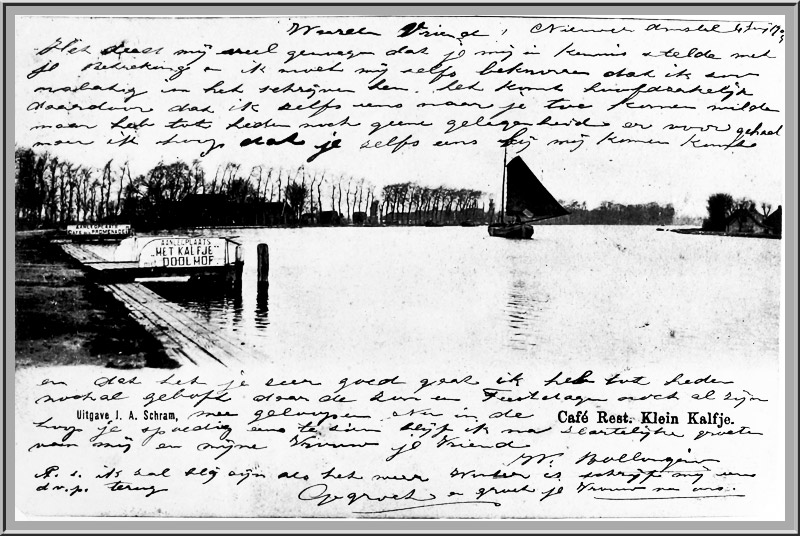 Waarde Vriend, Nieuwer Amstel
Het deed mij veel genoegen dat je mij in kennis stelde met
je betrekking en ik moet mij zelfs bekennen dat ik zoo
nalatig in het schrijven ben. Het komt hoofdzakelijk
daardoor dat ik zelfs eens naar je toe komen wilde
maar heb tot heden noch geene gelegenheid er voor gehad
maar ik hoop dat je zelfs eens bij mij komen
AANLEGPLAATS
"HET KALFJE"
DOOLHOF
en dat het je zeer goed gaat ik heb tot heden
nochal geboft daar de Zon en Feestdagen noch al zijn
Uitgave J. A. Schram,
mee geloopen. Nu in de
Café Rest. Klein Kalfje.
hoop je spoedig eens te zien blijf ik na hartelijke groeten
van mij en mijne Vrouw je Vriend
W.
P.s. ik zal blij zijn als het weer Winter is schrijf mij eens
d.v.p. terug
Gegroet en groet je Vrouw van ons.